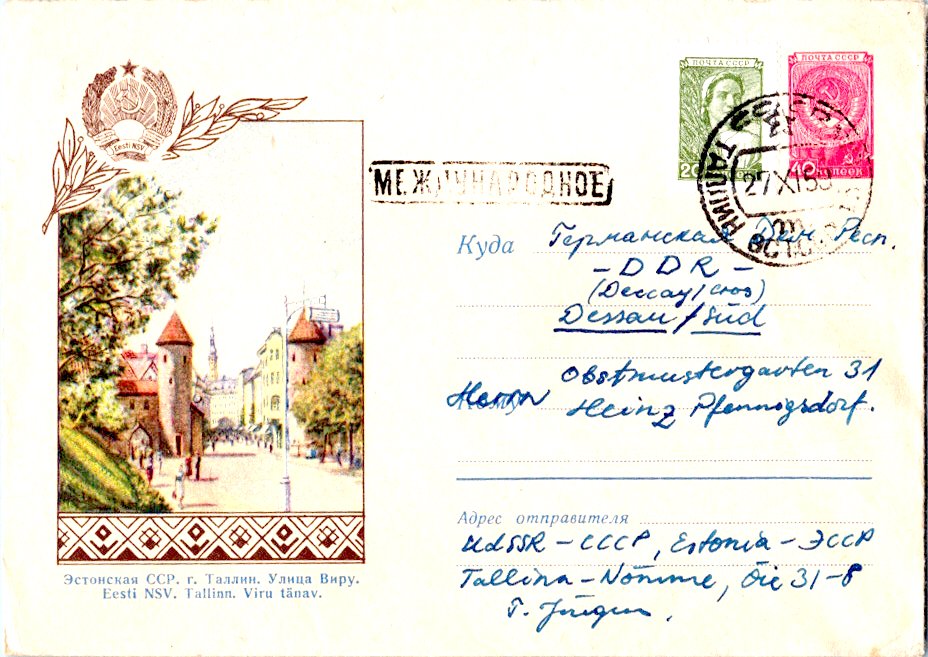 Eesti NSV
ПОЧТА СССР
20
ПОЧТА СССР
40 копеек
МЕЖДУНАРОДНОЕ
ТАЛЛИН
27 XI 58
Куда Германская Дем Респ.
- DDR -
(Dessau/
Dessau/Süd
Obstmustergarten 31
Herrn Кому Heinz Pfennigsdorf.
Адрес отправителя
UdSSR - СССР, Estonia - ЭССР
Tallinn - Nõmme, Õie 31-8
Эстонская ССР. г. Таллин. Улица Виру.
Eesti NSV. Tallinn. Viru tänav.